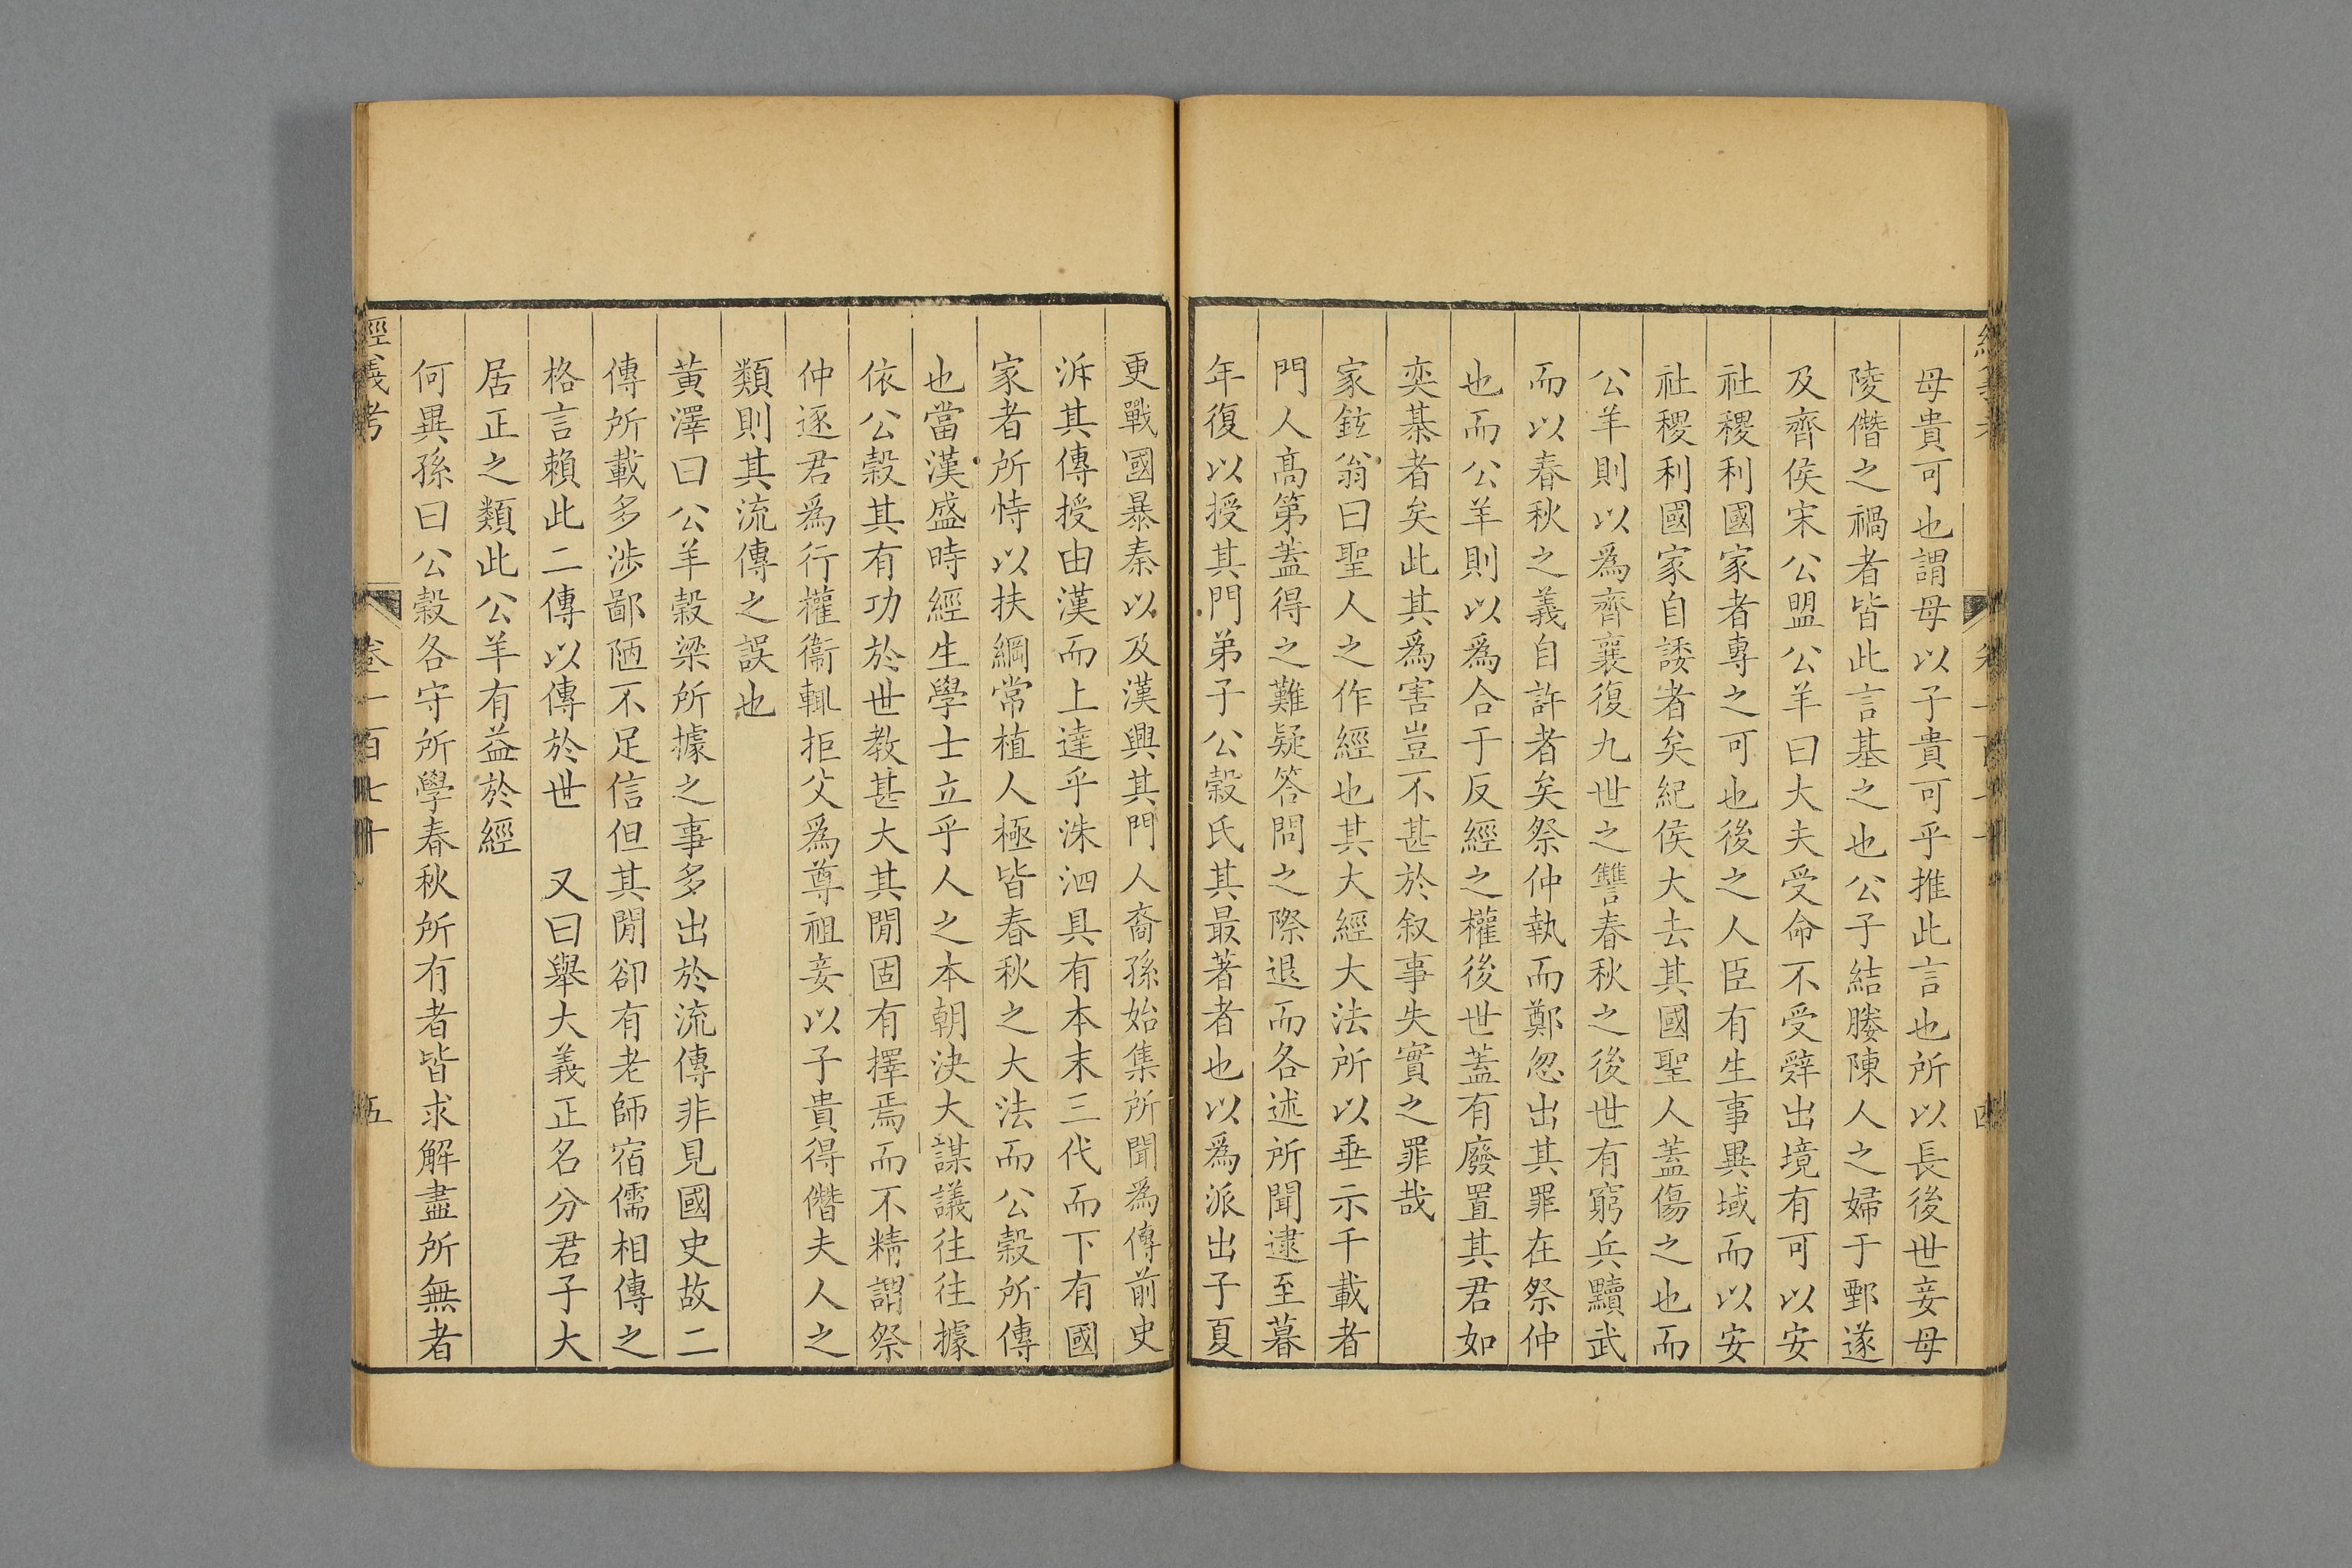 母貴可也謂母以子貴可乎推此言也所以長後世妾母
陵僭之禍者皆此言基之也公子結媵陳人之婦于鄄遂
及齊侯宋公盟公羊曰大夫受命不受辤出境有可以安
社稷利國家者專之可也後之人臣有生事異域而以安
社稷利國家自諉者矣紀侯大去其國聖人蓋傷之也而
公羊則以爲齊襄復九世之讐春秋之後世有窮兵黷武
而以春秋之義自許者矣祭仲執而鄭忽出其罪在祭仲
也而公羊則以爲合于反經之權後世蓋有廢置其君如
奕棊者矣此其爲害豈不甚於叙事失實之罪哉
家鉉翁曰聖人之作經也其大經大法所以垂示千載者
門人高第蓋得之難疑答問之際退而各述所聞逮至暮
年復以授其門弟子公穀氏其最著者也以爲派出子夏
更戰國暴秦以及漢興其門人裔孫始集所聞爲傳前史
泝其傳授由漢而上達乎洙泗具有本末三代而下有國
家者所恃以扶綱常植人極皆春秋之大法而公穀所傳
也當漢盛時經生學士立乎人之本朝決大謀議往往據
依公穀其有功於世教甚大其閒固有擇焉而不精謂祭
仲逐君爲行權衞輒拒父爲尊祖妾以子貴得僭夫人之
類則其流傳之誤也
黃澤曰公羊穀梁所據之事多出於流傳非見國史故二
傳所載多涉鄙陋不足信但其閒卻有老師宿儒相傳之
格言賴此二傳以傳於世　又曰舉大義正名分君子大
居正之類此公羊有益於經
何異孫曰公穀各守所學春秋所有者皆求解盡所無者
經義考　卷一百七十　五